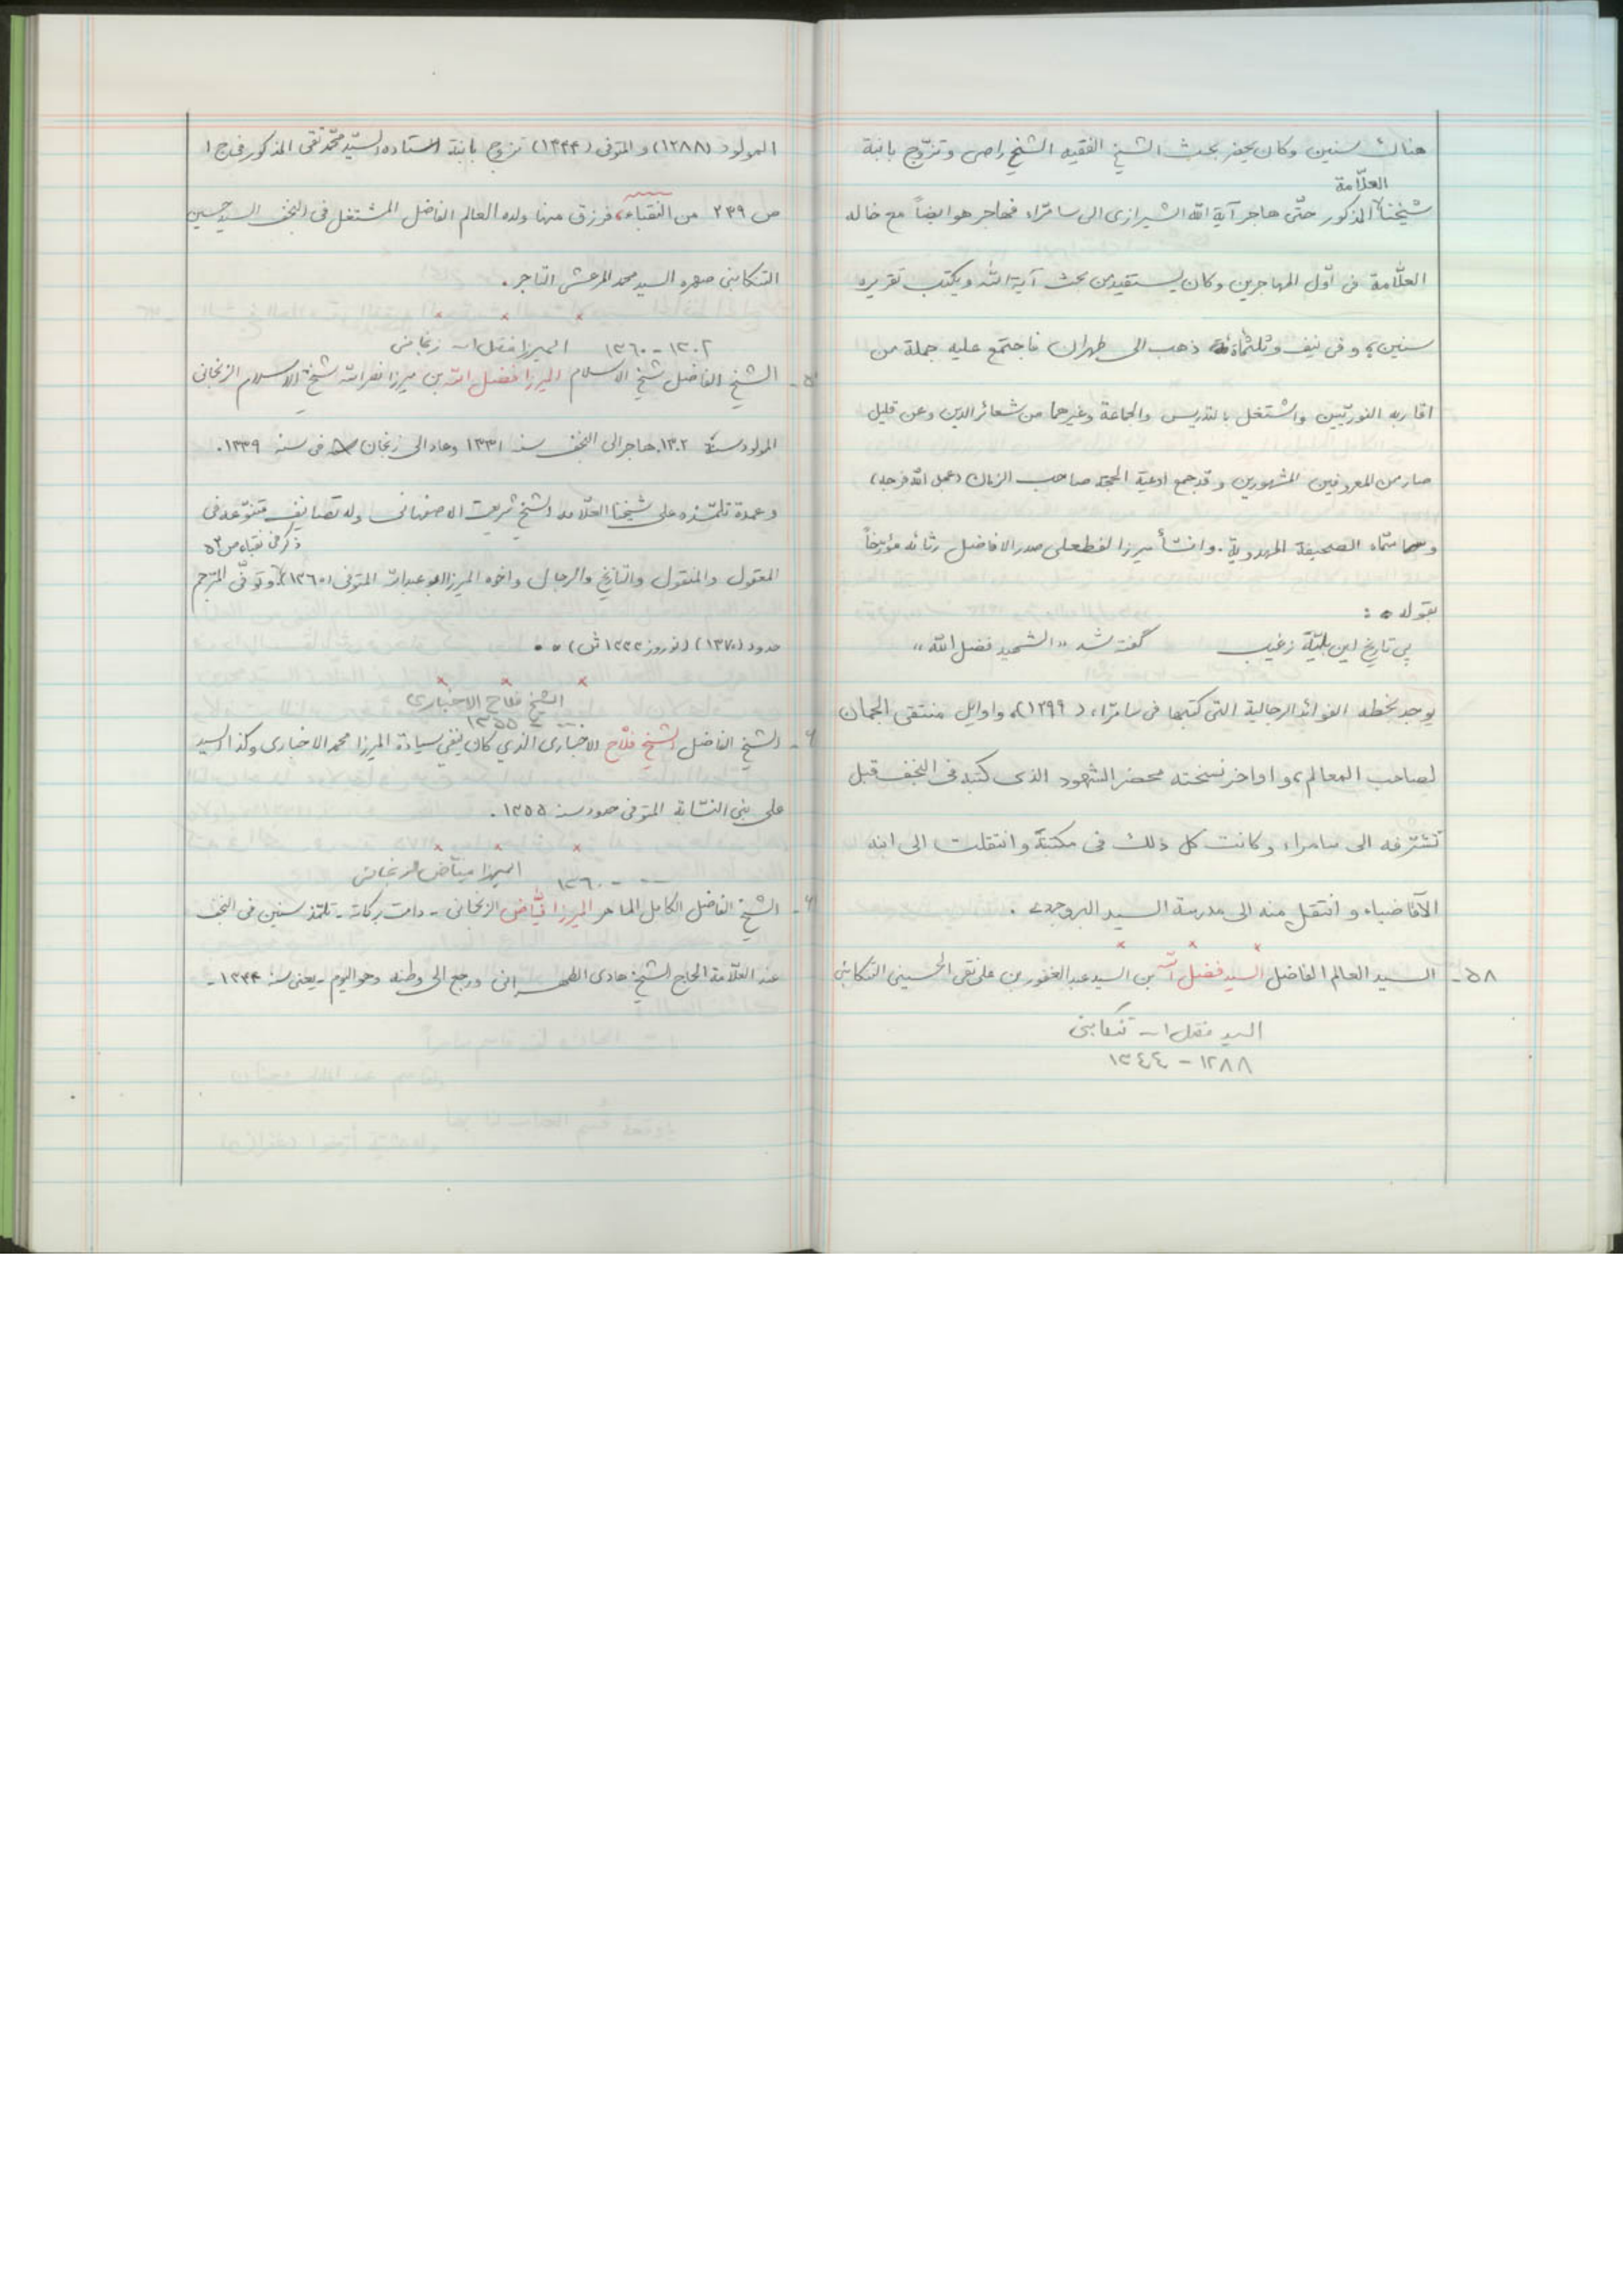 هناك سنين وكان يحضر بحث الشيخ الفقيه الشيخ راضى وتزوّج بابنة
العلّامة
شيخنا المذكور حتّى هاجر آية الله الشيرازى الى سامرّاء فهاجر هو ايضاً مع خاله
العلّامة فى اوّل المهاجرين وكان يستفيد من بحث آية الله ويكتب تقريره
سنين، و فى نيف وثلثمائة ذهب الى طهران فاجتمع عليه جملة من
اقاربه النوريّين واشتغل بالتدريس والجماعة وغيرهما من شعائر الدين وعن قليل
صار من المعروفين المشهورين وقد جمع ادعية الحجة صاحب الزمان (عجل الله فرجه)
و سمّاه الصحيفة المهدوية. وانشأ ميرزا لطفعلى صدر الافاضل رثائه مؤرّخاً
بقوله :
پى تاريخ اين بليّهٔ زغيب گفته شد «الشهيد فضل الله»
يوجد بخطه الفوائد الرجالية التى كتبها فى سامرّاء (١٢٩٩)، واوايل منتقى الجمان
لصاحب المعالم، و اواخر نسخته محضر الشهود الذى كتبه فى النجف قبل
تشرّفه الى سامراء وكانت كل ذلك فى مكتبة وانتقلت الى ابنه
الآقا ضياء و انتقل منه الى مدرسة السيد البروجردى .
٥٨- السيد العالم الفاضل السيد فضل الله بن السيد عبد الغفور بن على نقى الحسينى التنكابنى
السيد فضل الله تنكابنى
١٢٨٨ - ١٣٤٤
المولود (١٢٨٨) و المتوفى (١٣٤٤) تزوج بابنة استاده السيّد محمّد تقى المذكور فى ج ١
ص ٢٣٩ من النقباء، فرزق منها ولده العالم الفاضل المشتغل فى النجف السيد حسين
التنكابنى صهره السيد محمد المرعشى التاجر .
١٣٠٢ - ١٣٦٠ الميرزا فضل الله زنجانى
الشيخ الفاضل شيخ الاسلام الميرزا فضل الله بن ميرزا نصر الله شيخ الاسلام الزنجانى
المولود سنة ١٣٠٢. هاجر الى النجف سنة ١٣٣١ وعاد الى زنجان فى سنة ١٣٣٩.
وعمدة تلمّذه على شيخنا العلّامة الشيخ شريعت الاصفهانى وله تصانيف متنوّعة فى
ذكر فى نقباء ص ٥٣
المعقول والمنقول والتاريخ والرجال واخوه الميرزا ابو عبد الله المتوفى (١٣٦٠) وتوفّى المترجم
حدود (١٣٧٠) (نوروز ١٣٣٣ ش)
الشيخ فلاح الاخبارى
... - ١٣٥٥
الشيخ الفاضل الشيخ فلاح الاخبارى الذي كان ينفي سيادة الميرزا محمد الاخبارى وكذا السيد
على بنى النسّابة المتوفى حدود سنة ١٣٥٥ .
... - ١٣٦٠ الميرزا فيّاض الزنجانى
الشيخ الفاضل الكامل الماهر الميرزا فيّاض الزنجانى - دامت بركاته - تلمّذ سنين فى النجف
عند العلّامة الحاج الشيخ هادى الطهرانى ورجع الى وطنه وهو اليوم - يعنى سنة ١٣٣٤ -